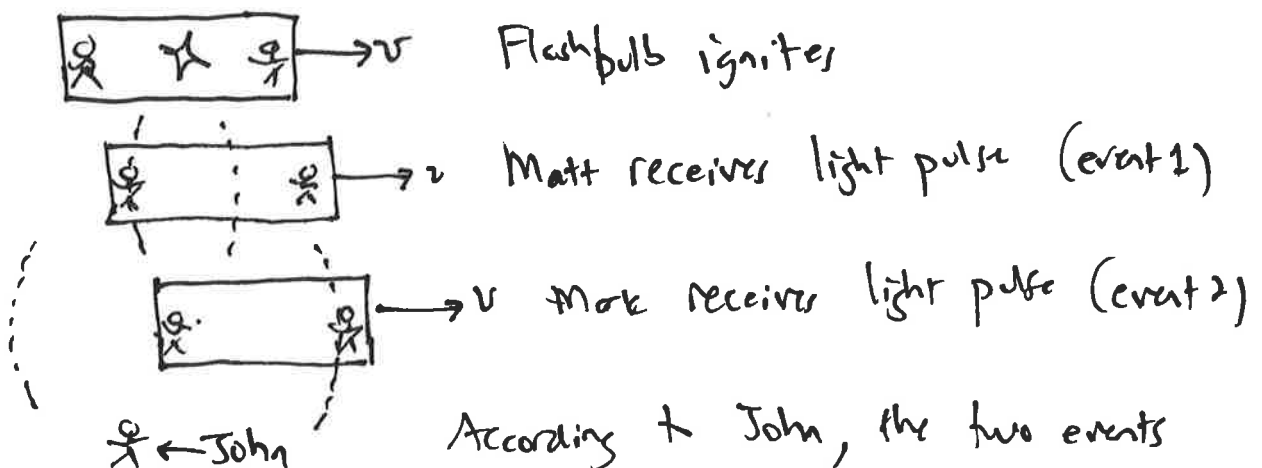 v Flashbulb ignites
v Matt receives light pulse (event 1)
v Mark receives light pulse (event 2)
←John According to John, the two events